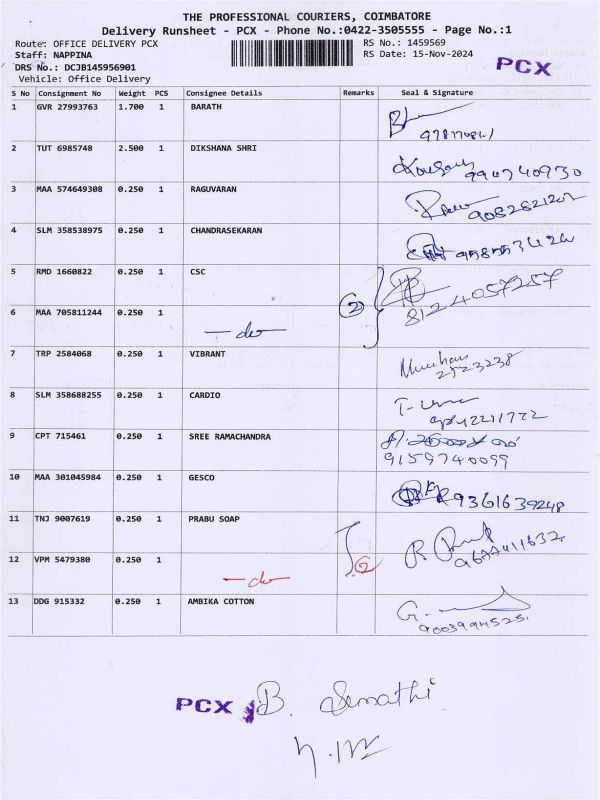 THE PROFESSIONAL COURIERS, COIMBATORE
Delivery Runsheet - PCX - Phone No.:0422-3505555 - Page No.:1
Route: OFFICE DELIVERY PCX RS No.: 1459569
Staff: NAPPINA RS Date: 15-Nov-2024
DRS No.: DCJB145956901
PCX
Vehicle: Office Delivery
S No Consignment No Weight PCS Consignee Details Remarks Seal & Signature
1 GVR 27993763 1.700 1 BARATH
2 TUT 6985748 2.500 1 DIKSHANA SHRI
994740930
3 MAA 574649308 0.250 1 RAGUVARAN
9082821202
4 SLM 358538975 0.250 1 CHANDRASEKARAN
5 RMD 1660822 0.250 1 CSC
2 8124057257
6 MAA 705811244 0.250 1
-do-
7 TRP 2584068 0.250 1 VIBRANT
2523238
8 SLM 358688255 0.250 1 CARDIO
9 CPT 715461 0.250 1 SREE RAMACHANDRA
9159740099
10 MAA 301045984 0.250 1 GESCO
9361639248
11 TNJ 9007619 0.250 1 PRABU SOAP
9677411632
12 VPM 5479380 0.250 1
-do- 2
13 DDG 915332 0.250 1 AMBIKA COTTON
PCX B.